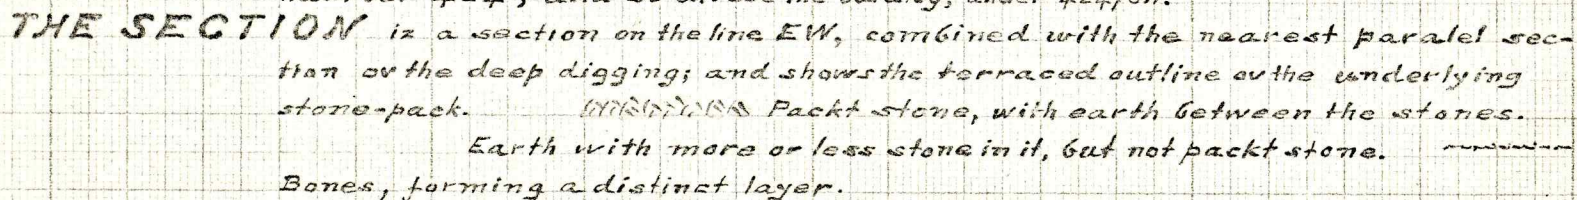 THE SECTION iz a section on the line EW, combined with the nearest paralel sec-
tion ov the deep digging; and shows the terraced outline ov the underlying
stone-pack. Packt stone, with earth between the stones.
Earth with more or less stone in it, but not packt stone.
Bones, forming a distinct layer.